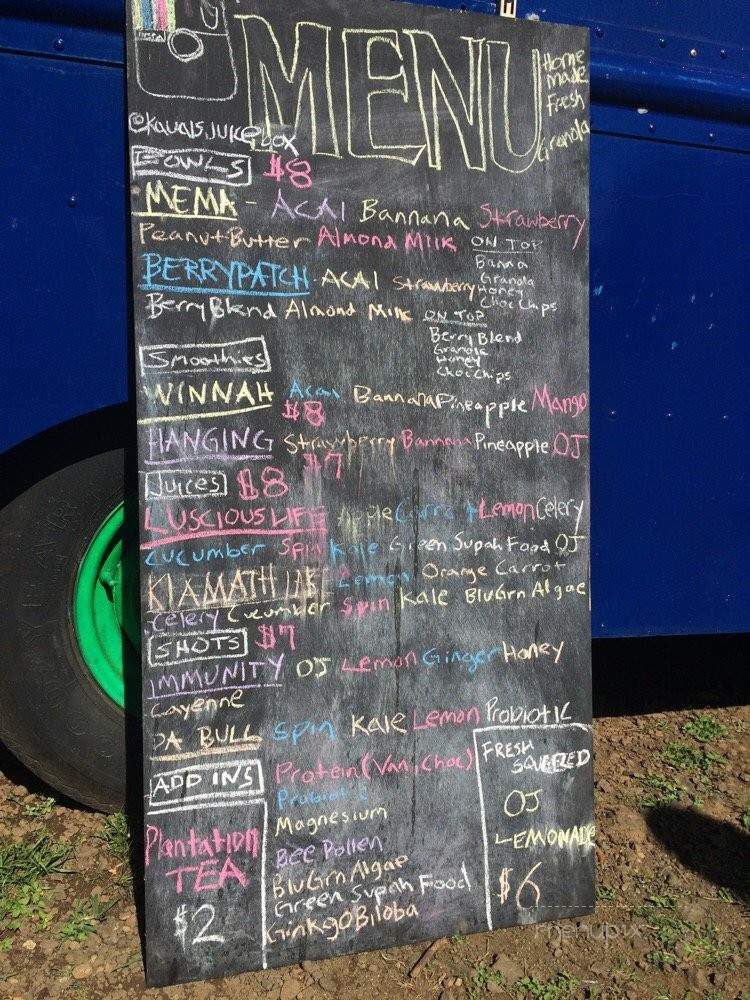 MENU
Home
made
Fresh
Granola
@kauaisjuicebox
BOWLS $8
MEMA - ACAI Bannana Strawberry
Peanut Butter Almond Milk ON TOP
Banna
Granola
Honey
Choc Chips
BERRYPATCH - ACAI Strawberry
Berry Blend Almond Milk ON TOP
Berry Blend
Granola
Honey
Choc Chips
Smoothies
WINNAH Acai Bannana Pineapple Mango
$8
HANGING Strawberry Bannana Pineapple OJ
$7
Juices $8
LUSCIOUS LIFE Apple Carrot Lemon Celery
Cucumber Spin Kale Green Supah Food OJ
KLAMATH Lemon Orange Carrot
Celery Cucumber Spin Kale BluGrn Algae
SHOTS $7
IMMUNITY OJ Lemon Ginger Honey
Cayenne
DA BULL Spin Kale Lemon Probiotic
ADD INS Protein (Van, Choc)
Probiotic
Magnesium
Bee Pollen
BluGrn Algae
Green Supah Food
Ginkgo Biloba
Plantation
TEA
$2
FRESH
SQUEEZED
OJ
LEMONADE
$6